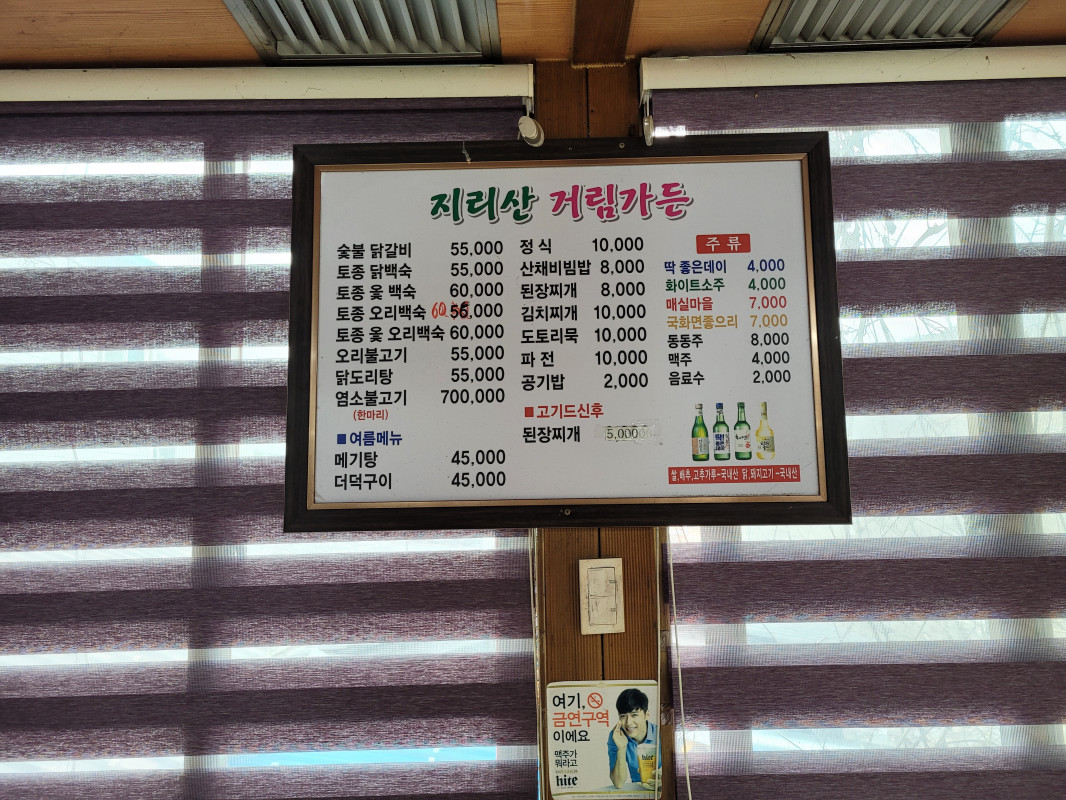 지리산 거림가든
숯불 닭갈비 55,000
토종 닭백숙 55,000
토종 옻 백숙 60,000
토종 오리백숙 55,000
토종 옻 오리백숙 60,000
오리불고기 55,000
닭도리탕 55,000
염소불고기 700,000
(한마리)
■ 여름메뉴
메기탕 45,000
더덕구이 45,000
정 식 10,000
산채비빔밥 8,000
된장찌개 8,000
김치찌개 10,000
도토리묵 10,000
파 전 10,000
공기밥 2,000
■ 고기드신후
된장찌개 5,000
주 류
딱 좋은데이 4,000
화이트소주 4,000
매실마을 7,000
국화면좋으리 7,000
동동주 8,000
맥주 4,000
음료수 2,000
쌀,배추,고추가루-국내산 닭,돼지고기-국내산
여기,
금연구역
이에요
맥주가
뭐라고
hite